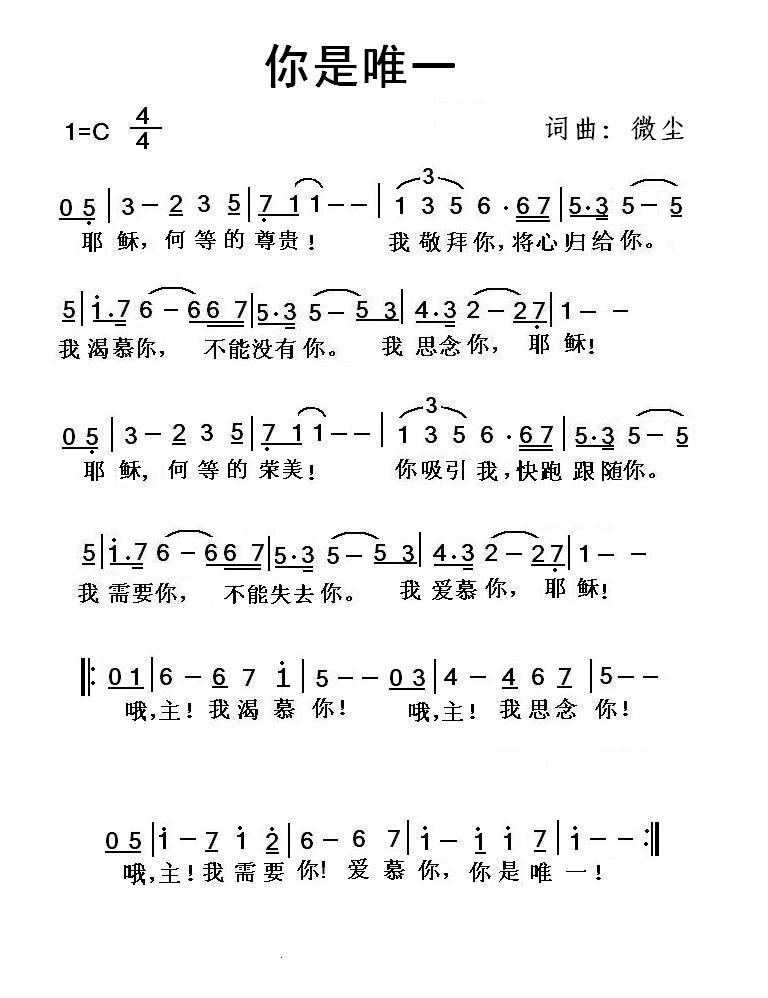 你是唯一
1=C 4/4 词曲: 微尘
0 5 | 3 – 2 3 5 | 7 1 1 – – | 3 1 3 5 6 · 6 7 | 5 · 3 5 – 5
耶 稣, 何 等 的 尊 贵! 我 敬 拜 你, 将 心 归 给 你。
5 | i . 7 6 – 6 6 7 | 5 · 3 5 – 5 3 | 4 . 3 2 – 2 7 | 1 – –
我 渴 慕 你, 不 能 没 有 你。 我 思 念 你, 耶 稣!
0 5 | 3 – 2 3 5 | 7 1 1 – – | 3 1 3 5 6 · 6 7 | 5 · 3 5 – 5
耶 稣, 何 等 的 荣 美! 你 吸 引 我, 快 跑 跟 随 你。
5 | i . 7 6 – 6 6 7 | 5 · 3 5 – 5 3 | 4 . 3 2 – 2 7 | 1 – –
我 需 要 你, 不 能 失 去 你。 我 爱 慕 你, 耶 稣!
‖: 0 1 | 6 – 6 7 i | 5 – – 0 3 | 4 – 4 6 7 | 5 – –
哦, 主! 我 渴 慕 你! 哦, 主! 我 思 念 你!
0 5 | i – 7 i 2 | 6 – 6 7 | i – i i 7 | i – – :‖
哦, 主! 我 需 要 你! 爱 慕 你, 你 是 唯 一!